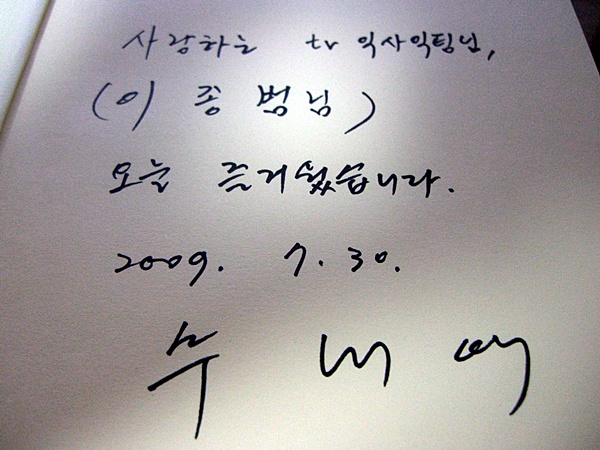 사랑하는 tv 익사익팀님,
(이 종 범님)
오늘 즐거웠습니다.
2009. 7. 30.